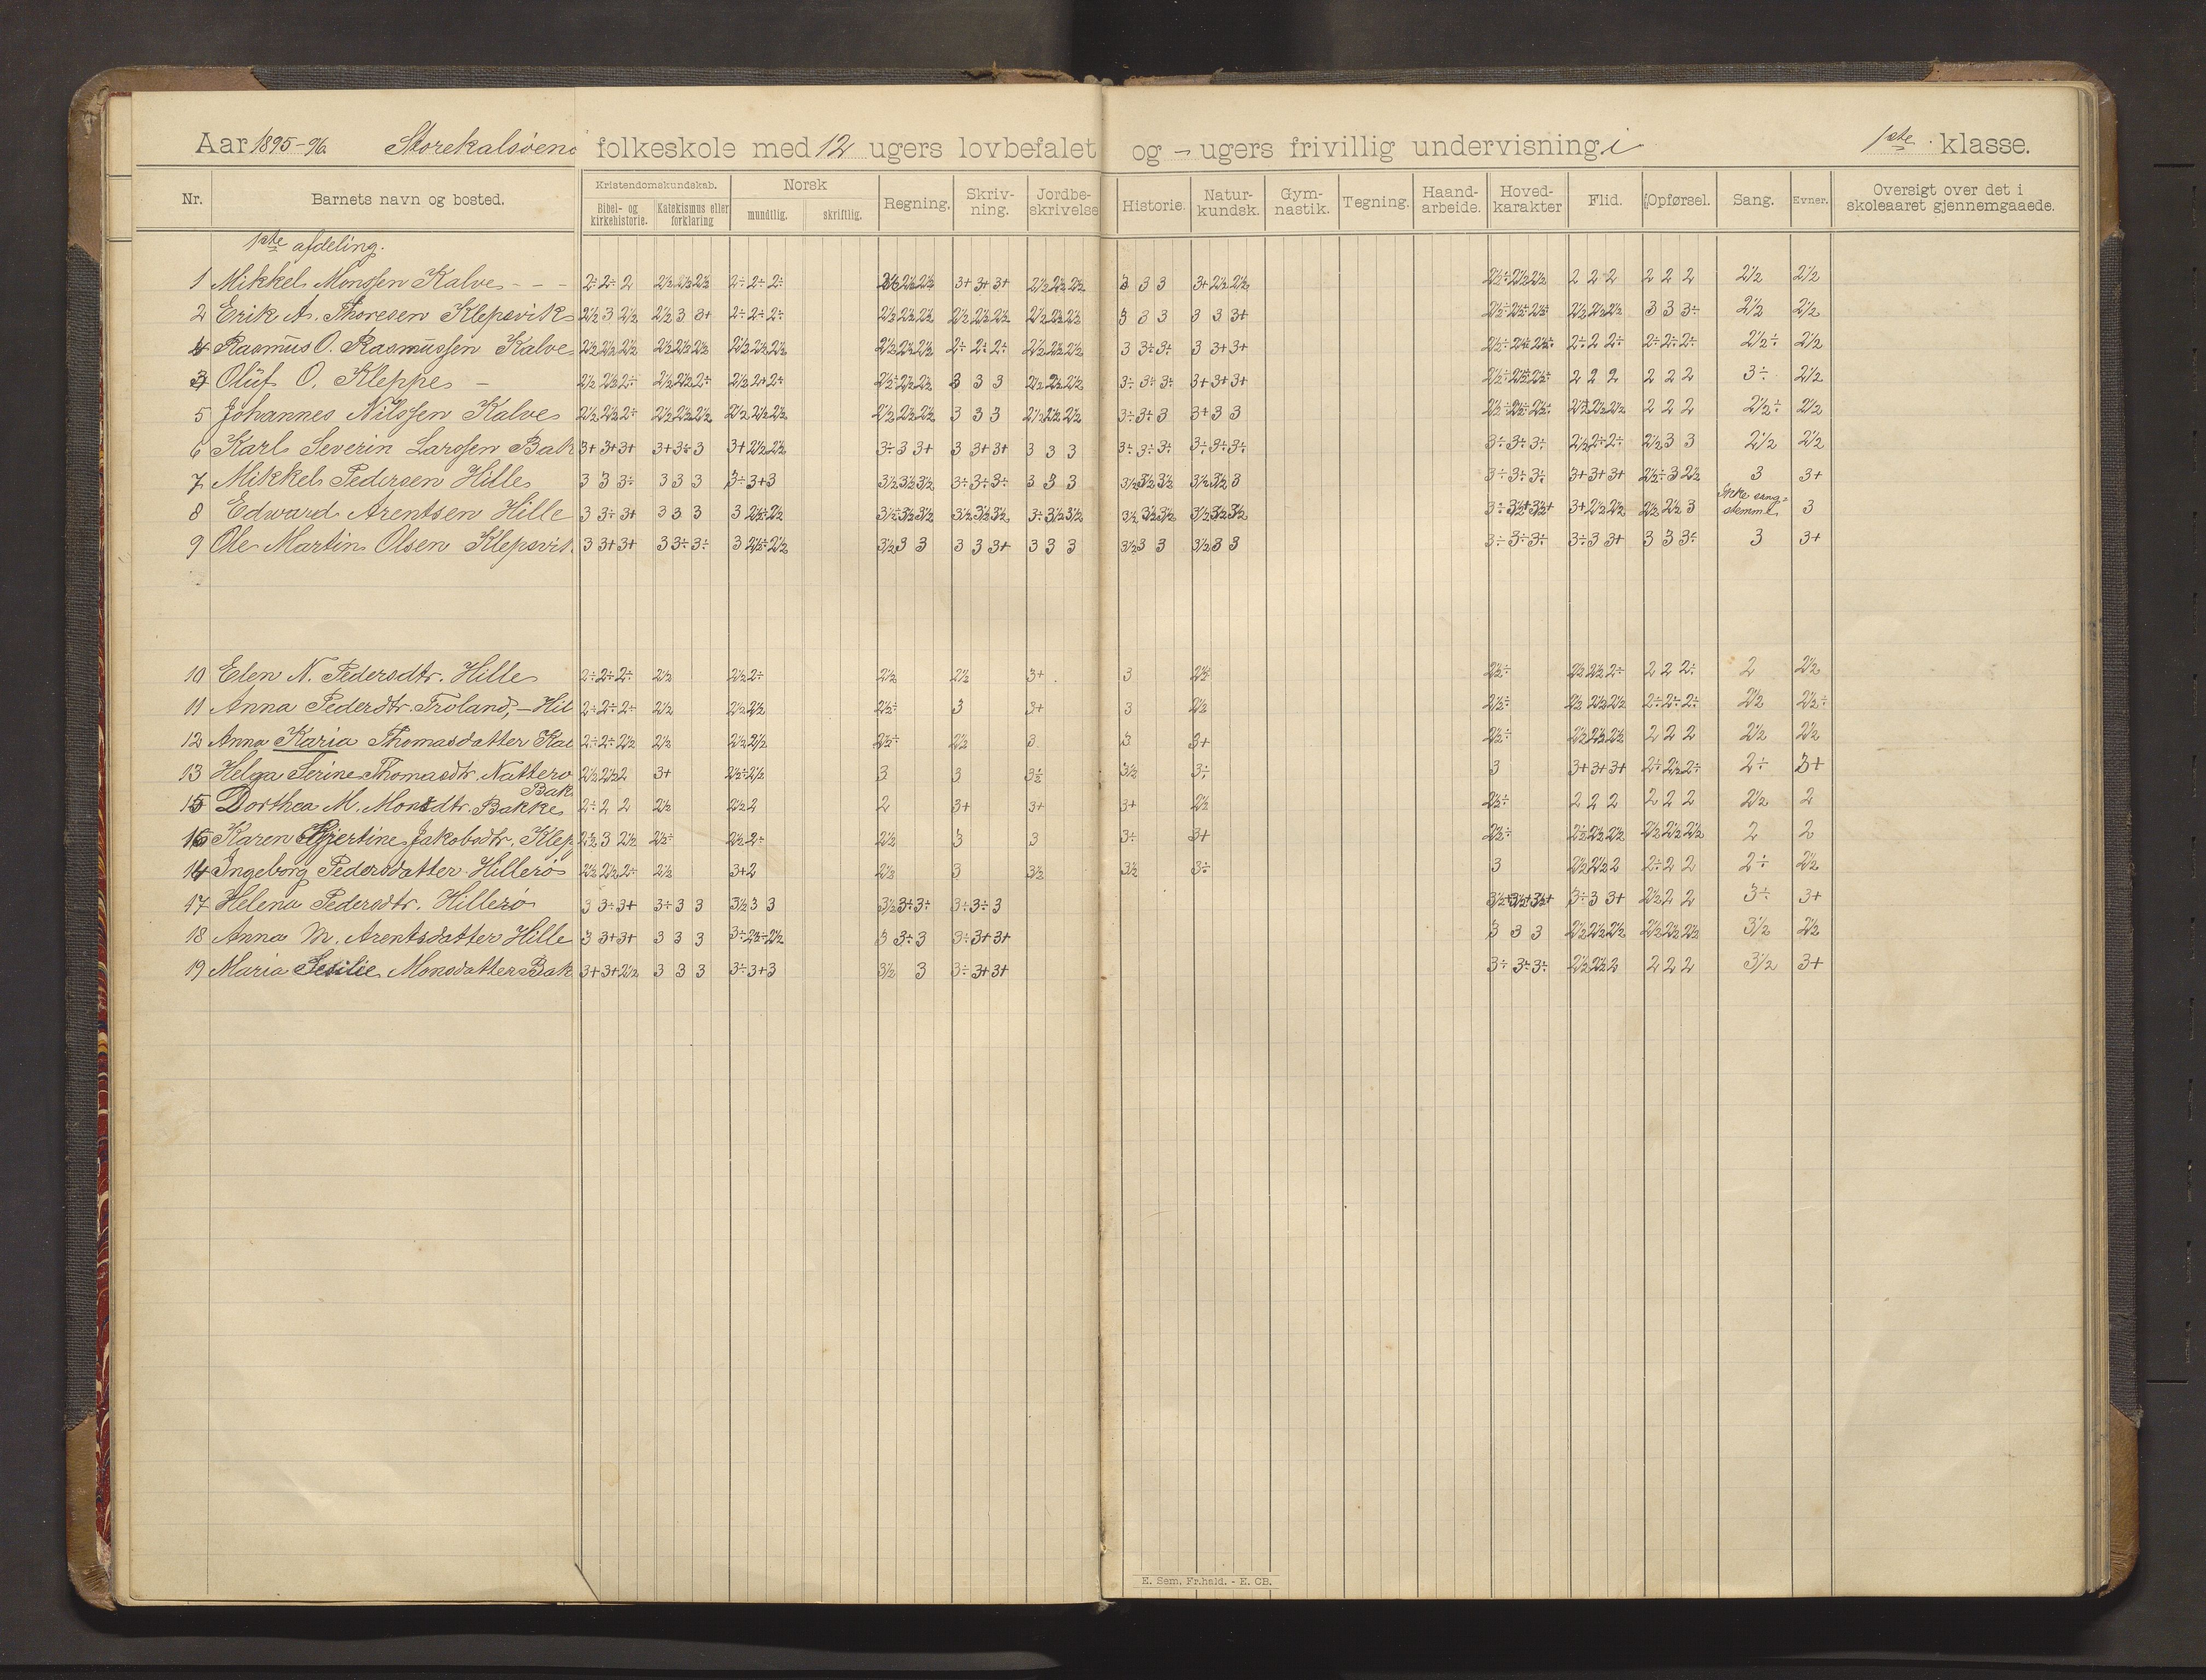 Aar 1895-96 Storekalsøens folkeskole med 12 ugers lovbefalet og - ugers frivillig undervisning i 1ste klasse.
Nr. Barnets navn og bosted. Kristendomskundskab. Bibel- og kirkehistorie. Katekismus eller forklaring Norsk mundtlig. skriftlig. Regning. Skriv-ning. Jordbe-skrivelse Historie. Natur-kundsk. Gym-nastik. Tegning. Haand-arbeide. Hoved-karakter Flid. Opførsel. Sang. Evner. Oversigt over det i skoleaaret gjennemgaaede.
1ste afdeling.
1 Mikkel Monssen Kalve - - - 2÷ 2÷ 2 2½ 2½ 2½ 2÷ 2÷ 2÷ 2½ 2½ 3+ 3+ 3+ 2½ 2½ 2½ 3 3 3 3+ 2½ 2½ 2½÷ 2½ 2½ 2 2 2 2 2 2 2½ 2½
2 Erik A. Thoresen Klepsvik 2½ 3 2½ 2½ 3 3+ 2÷ 2÷ 2÷ 2½ 2½ 2½ 2½ 2½ 2½ 2½ 2½ 2½ 3 3 3 3 3 3+ 2½÷ 2½÷ 2½÷ 2½ 2½ 2½ 3 3 3÷ 2½ 2½
4 Rasmus O. Rasmussen Kalve 2½ 2½ 2½ 2½ 2½ 2½ 2½ 2½ 2½ 2½ 2½ 2½ 2÷ 2÷ 2÷ 2½ 2½ 2½ 3 3÷ 3÷ 3 3+ 3+ 2½÷ 2½÷ 2½÷ 2÷ 2 2÷ 2÷ 2÷ 2÷ 2½÷ 2½
3 Oluf O. Kleppe - 2½ 2½ 2÷ 2½ 2½ 2÷ 2½ 2+ 2÷ 2½÷ 2½ 2½ 3 3 3 2½ 2½ 2½ 3÷ 3÷ 3÷ 3+ 3+ 3+ 2½÷ 2½÷ 2½÷ 2 2 2 2 2 2 3÷ 2½
5 Johannes Nilssen Kalve 2½ 2½ 2÷ 2½ 2½ 2½ 2½ 2½ 2½ 2½ 2½ 2½ 3 3 3 2½ 2½ 2½ 3÷ 3÷ 3 3+ 3 3 2½÷ 2½÷ 2½÷ 2½ 2½ 2½ 2 2 2 2½÷ 2½
6 Karl Severin Larssen Bak 3+ 3+ 3+ 3+ 3÷ 3 3+ 2½ 2½ 3÷ 3 3+ 3 3+ 3+ 3 3 3 3÷ 3÷ 3÷ 3÷ 3÷ 3÷ 3÷ 3÷ 3÷ 2½ 2÷ 2÷ 2½ 3 3 2½ 2½
7 Mikkel Pedersen Hille 3 3 3÷ 3 3 3 3÷ 3+ 3 3½ 3½ 3½ 3÷ 3÷ 3÷ 3 3 3 3½ 3½ 3½ 3½ 3½ 3 3÷ 3÷ 3÷ 3+ 3+ 3+ 2½÷ 3 2½ 3 3+
8 Edward Arentsen Hille 3 3÷ 3+ 3 3 3 3 2½÷ 2½ 3½÷ 3½ 3½ 3½ 3½ 3½ 3÷ 3½ 3½ 3½ 3½ 3½ 3½ 3½ 3½ 3÷ 3½+ 3½+ 3+ 2½ 2½ 2½ 2½ 3 Ikke sang-stemme 3
9 Ole Martin Olsen Klepsvik 3 3+ 3+ 3 3÷ 3÷ 3 2½÷ 2½ 3½ 3 3 3 3 3+ 3 3 3 3½ 3 3 3½ 3 3 3÷ 3÷ 3÷ 3÷ 3 3+ 3 3 3÷ 3 3+
10 Elen N. Pedersdtr. Hille 2÷ 2÷ 2÷ 2½ 2½ 2÷ 2½ 2½ 3+ 3 2½ 2½÷ 2½ 2½ 2÷ 2 2 2÷ 2 2½
11 Anna Pederdtr. Troland, - Hil 2÷ 2÷ 2÷ 2½ 2½ 2½ 2½÷ 3 3+ 3 2½ 2½÷ 2½ 2½ 2½ 2÷ 2÷ 2÷ 2½ 2½÷
12 Anna Karia Thomasdatter Kal 2÷ 2÷ 2½ 2½ 2½ 2½ 2½÷ 2½ 3 3 3+ 2½÷ 2½ 2½ 2½ 2 2 2 2½ 2½
13 Helga Serine Thomasdtr. Nattero 2½ 2½ 2 3+ 2½÷ 2½ 3 3 3½ 3½ 3÷ 3 3+ 3+ 3+ 2÷ 2½ 2÷ 2÷ 3+
Bak
15 Dorthea M. Monsdtr. Bakke 2÷ 2 2 2½ 2½ 2 2 3+ 3+ 3+ 2½ 2½÷ 2 2 2 2 2 2 2½ 2
16 Karen Gjertine Jakobsdtr. Klep 2½ 3 2½ 2½÷ 2½ 2÷ 2½ 3 3 3÷ 3+ 2½÷ 2½ 2½ 2½ 2½ 2½ 2½ 2 2
14 Ingeborg Pedersdatter Hillerø 2½ 2½ 2÷ 2½ 3+ 2 2½ 3 3½ 3½ 3÷ 3 2½ 2½ 2 2÷ 2 2 2÷ 2½
17 Helena Pedersdtr. Hillerø 3 3÷ 3+ 3÷ 3 3 3½ 3 3 3½ 3÷ 3÷ 3÷ 3÷ 3 3½+ 3½+ 3½+ 3÷ 3 3+ 2½ 2 2 3÷ 3+
18 Anna M. Arentsdatter Hille 3 3+ 3+ 3 3 3 3÷ 2½÷ 2½ 3 3÷ 3 3÷ 3+ 3+ 3 3 3 2½ 2½ 2½ 2½ 2½ 2½ 3½ 2½
19 Maria Sesilie Monsdatter Bak 3+ 3+ 2½ 3 3 3 3÷ 3+ 3 3½ 3 3÷ 3+ 3+ 3÷ 3÷ 3÷ 2½ 2½ 2 2 2 2 3½ 3+
E. Sem, Fr.hald. - E. CB.